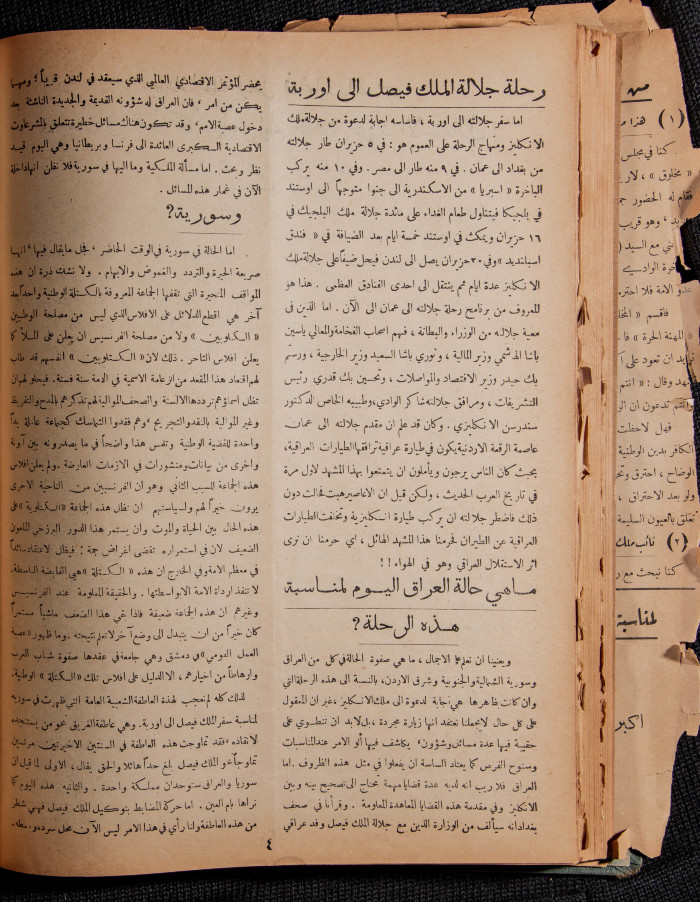 رحلة جلالة الملك فيصل الى اوربة
اما سفر جلالته الى اوربة ، فاساسه اجابة لدعوة من جلالة ملك
الانكليز ومنهاج الرحلة على العموم هو : في ٥ حزيران طار جلالته
من بغداد الى عمان . في ٩ منه طار الى مصر . وفي ١٠ منه يركب
الباخرة « اسبريا » من الاسكندرية الى جنوا متوجهاً الى اوستند
في بلجيكا فيتناول طعام الغداء على مائدة جلالة ملك البلجيك في
١٦ حزيران ويمكث في اوستند خمسة ايام بعد الضيافة في « فندق
اسبلنديد » وفي ٢٠ حزيران يصل الى لندن فيحل ضيفاً على جلالة ملك
الانكليز عدة ايام ثم ينتقل الى احدى الفنادق العظمى . هذا هو
المعروف من برنامج رحلة جلالته الى عمان الى الآن . اما الذين في
معية جلالته من الوزراء والبطانة ، فهم اصحاب الفخامة والمعالي ياسين
باشا الهاشمي وزير المالية ، ونوري باشا السعيد وزير الخارجية ، ورستم
بك حيدر وزير الاقتصاد والمواصلات ، وتحسين بك قدري رئيس
التشريفات ، ومرافق جلالته شاكر الوادي ، وطبيبه الخاص الدكتور
سندرسن الانكليزي . وكان قد علم ان مقدم جلالته الى عمان
عاصمة الرقعة الاردنية يكون في طيارة عراقية ترافقها الطيارات العراقية ،
بحيث كان الناس يرجون ويأملون ان يتمتعوا بهذا المشهد لاول مرة
في تاريخ العرب الحديث ، ولكن قيل ان الاعاصير هبت فحالت دون
ذلك فاضطر جلالته ان يركب طيارة انكليزية وتخلفت الطيارات
العراقية عن الطيران فحرمنا هذا المشهد الهائل ، اي حرمنا ان نرى
اثر الاستقلال العراقي وهو في الهواء ! !
ماهي حالة العراق اليوم لمناسبة
هذه الرحلة ؟
ويعنينا ان نعلم على الاجمال ، ما هي صفوة الحالة في كل من العراق
وسورية الشمالية والجنوبية وشرق الاردن ، بالنسبة الى هذه الرحلة التي
وان كانت ظاهرها هي اجابة لدعوة الى ملك الانكليز ، غير ان المعقول
على كل حال لايجعلنا نعتقد انها زيارة مجردة ، بل لابد ان تنطوي على
حقيبة فيها عدة مسائل وشؤون ، يكاشف فيها أولو الامر عند المناسبات
وسنوح الفرص كما يعتاد الساسة ان يفعلوا في مثل هذه الظروف . اما
العراق فلا ريب انه لديه عدة قضايا مهمة تحتاج الى تصحيح بينه وبين
الانكليز وفي مقدمة هذه القضايا المعاهدة المعلومة . وقرأنا في صحف
بغداد انه سيألف من الوزارة الذين مع جلالة الملك فيصل وفد عراقي
يحضر المؤتمر الاقتصادي العالمي الذي سيعقد في لندن قريباً ؛ ومهما
يكن من امر ، فان العراق له شؤونه القديمة والجديدة الناشئة بعد
دخول عصبة الامم ، وقد تكون هناك مسائل خطيرة تتعلق بالمشروعات
الاقتصادية الكبرى العائدة الى فرنسا وبريطانيا وهي اليوم قيد
نظر وبحث . اما مسألة الملكية وما اليها في سورية فلا نظن انها داخلة
الآن في غمار هذه المسائل .
وسورية ؟
اما الحالة في سورية في الوقت الحاضر ، فجل ما يقال فيها ، انها
صريعة الحيرة والتردد والغموض والابهام . ولا نشك ذرة ان هذه
المواقف المتحيرة التي تقفها الجماعة المعروفة بالكتلة الوطنية واحداً بعد
آخر هي اقطع الدلائل على الافلاس الذي ليس من مصلحة الوطنيين
« الكتلويين » ولا من مصلحة افرنسيس ان يعلن على الملأ كما
يعلن افلاس التاجر . ذلك لان « الكتلويين » انفسهم قد طاب
لهم اقتعاد هذا المقعد من الزعامة الاسمية في الامة سنة فسنة . فيحلو لهم ان
تظل اسماؤهم ترددها الالسنة والصحف الموالية لهم تذكرهم بالمدح والتقريظ
وغير الموالية بالنقد والتجريح ، وهم فقدوا التماسك كجماعة عاملة يداً
واحدة للقضية الوطنية وتفس هذا واضحاً في ما يصدرونه بين آونة
واخرى من بيانات ومنشورات في الازمات العارضة . ولم يعلن افلاس
هذه الجماعة للسبب الثاني وهو ان الفرنسيين من الناحية الاخرى
يرون خيراً لهم ولسياستهم ان تظل هذه الجماعة « الكتلوية » على
هذه الحال بين الحياة والموت وان يستمر هذا الدور البرزخي الملعون
الضعيف لان في استمراره تقضى اغراض جمة : فيظل الاعتقاد سائداً
في معظم الامة وفي الخارج ان هذه « الكتلة » هي القابضة الباسطة ،
لا تنفذ ارادة الامة الا بواسطتها . والحقيقة المعلومة عند الفرنسيس
وغيرهم ان هذه الجماعة ضعيفة فاذا بقي هذا الضعف ماشياً مستمراً
كان خيراً من ان يتبدل الى وضع آخر لا تعلم نتيجته . وما ظهور « عصبة
العمل القومي » في دمشق وهي جامعة في عقدها صفوة شباب العرب
وارهاطاً من اخيارهم ، الا الدليل على افلاس تلك « الكتلة » الوطنية .
لذلك كله لم نعجب لهذه العاطفة الشعبية العامة التي ظهرت في سورية
لمناسبة سفر الملك فيصل الى اوربة . وهي عاطفة الغريق نحو من يستنجده
لانقاذه ، فقد تماوجت هذه العاطفة في السنتين الاخيرتين مرتين
تماوجاً نحو الملك فيصل بلغ حداً هائلاً والحق يقال ، الاولى لما قيل ان
سوريا والعراق ستوحدان مملكة واحدة . والثانية هذه اليوم كما
نراها بأم العين . اما حركة المضابط بتوكيل الملك فيصل فهي شطر
من هذه العاطفة ولنا رأي في هذا الامر ليس الآن محل سرده وبسطه .
٤
من
( ١ ) هذا م
كنا في مجلس
« مخلوق » ،
فقام له الحضور
وهو قريب
مع السيد
عدو الامة فلا احترم
فاقسم « المخل
« المهنة الحرة »
ان تعود على
وقال : « انتم
تدعون ان الو
فهل لاحظت
الكافر بدين الوطنية
الوضاح ، احترق
ولو بعد الاحتراق ،
تتعلق بالعيون السليمة
( ٢ ) نائب ملك
كنا نبحث مع
لمناسبة
اكبر